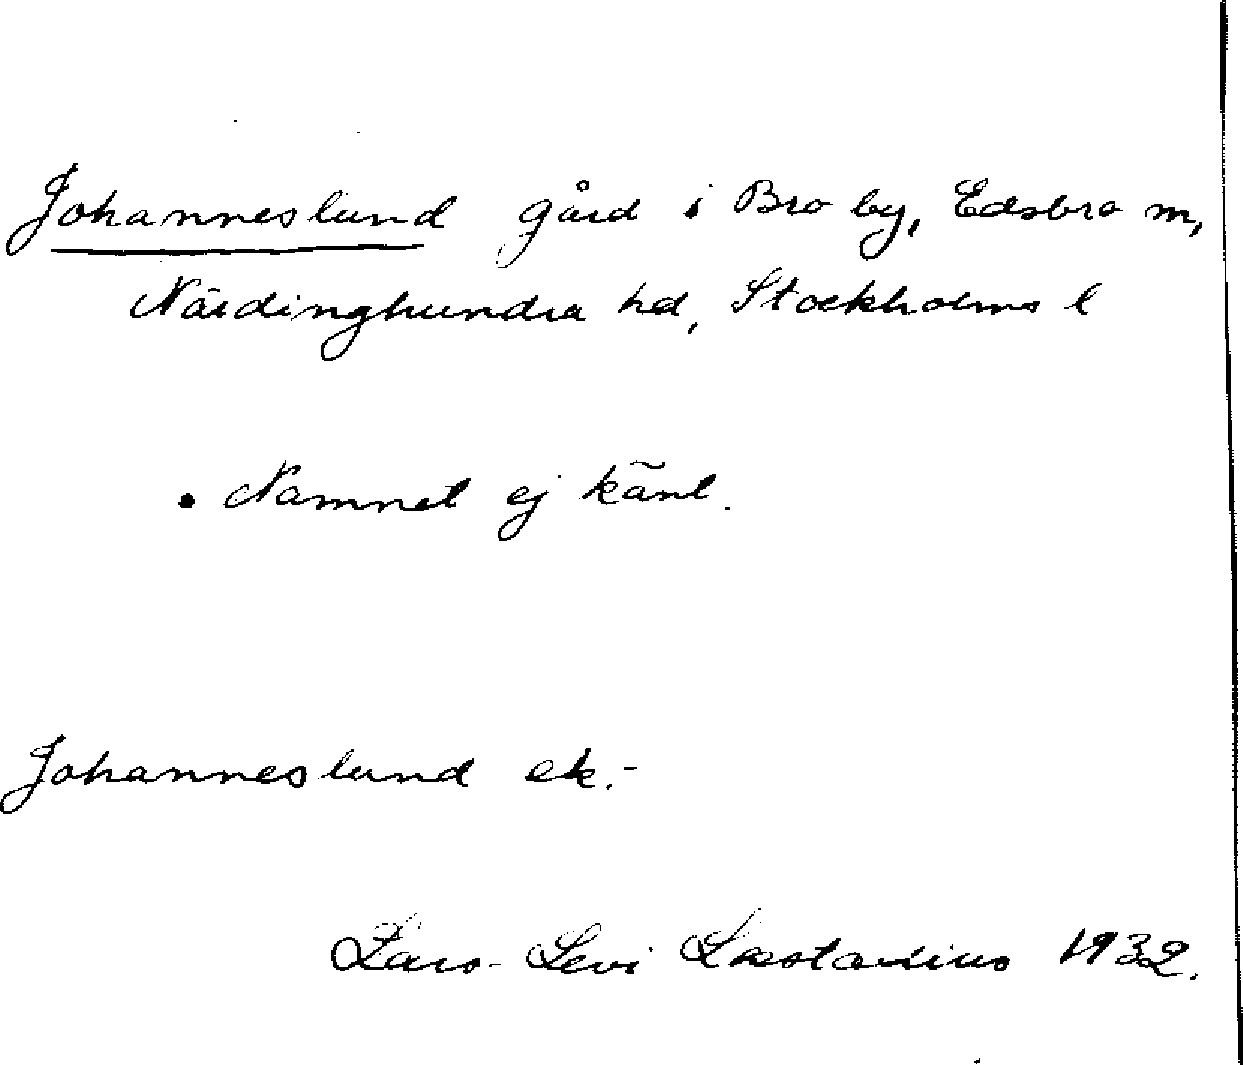 Johanneslund gård i Bro by, Edsbro sn,
Närdinghundra hd, Stockholms l
. Namnet ej känt.
Johanneslund ek.-
Lars-Levi Læstadius 1932.